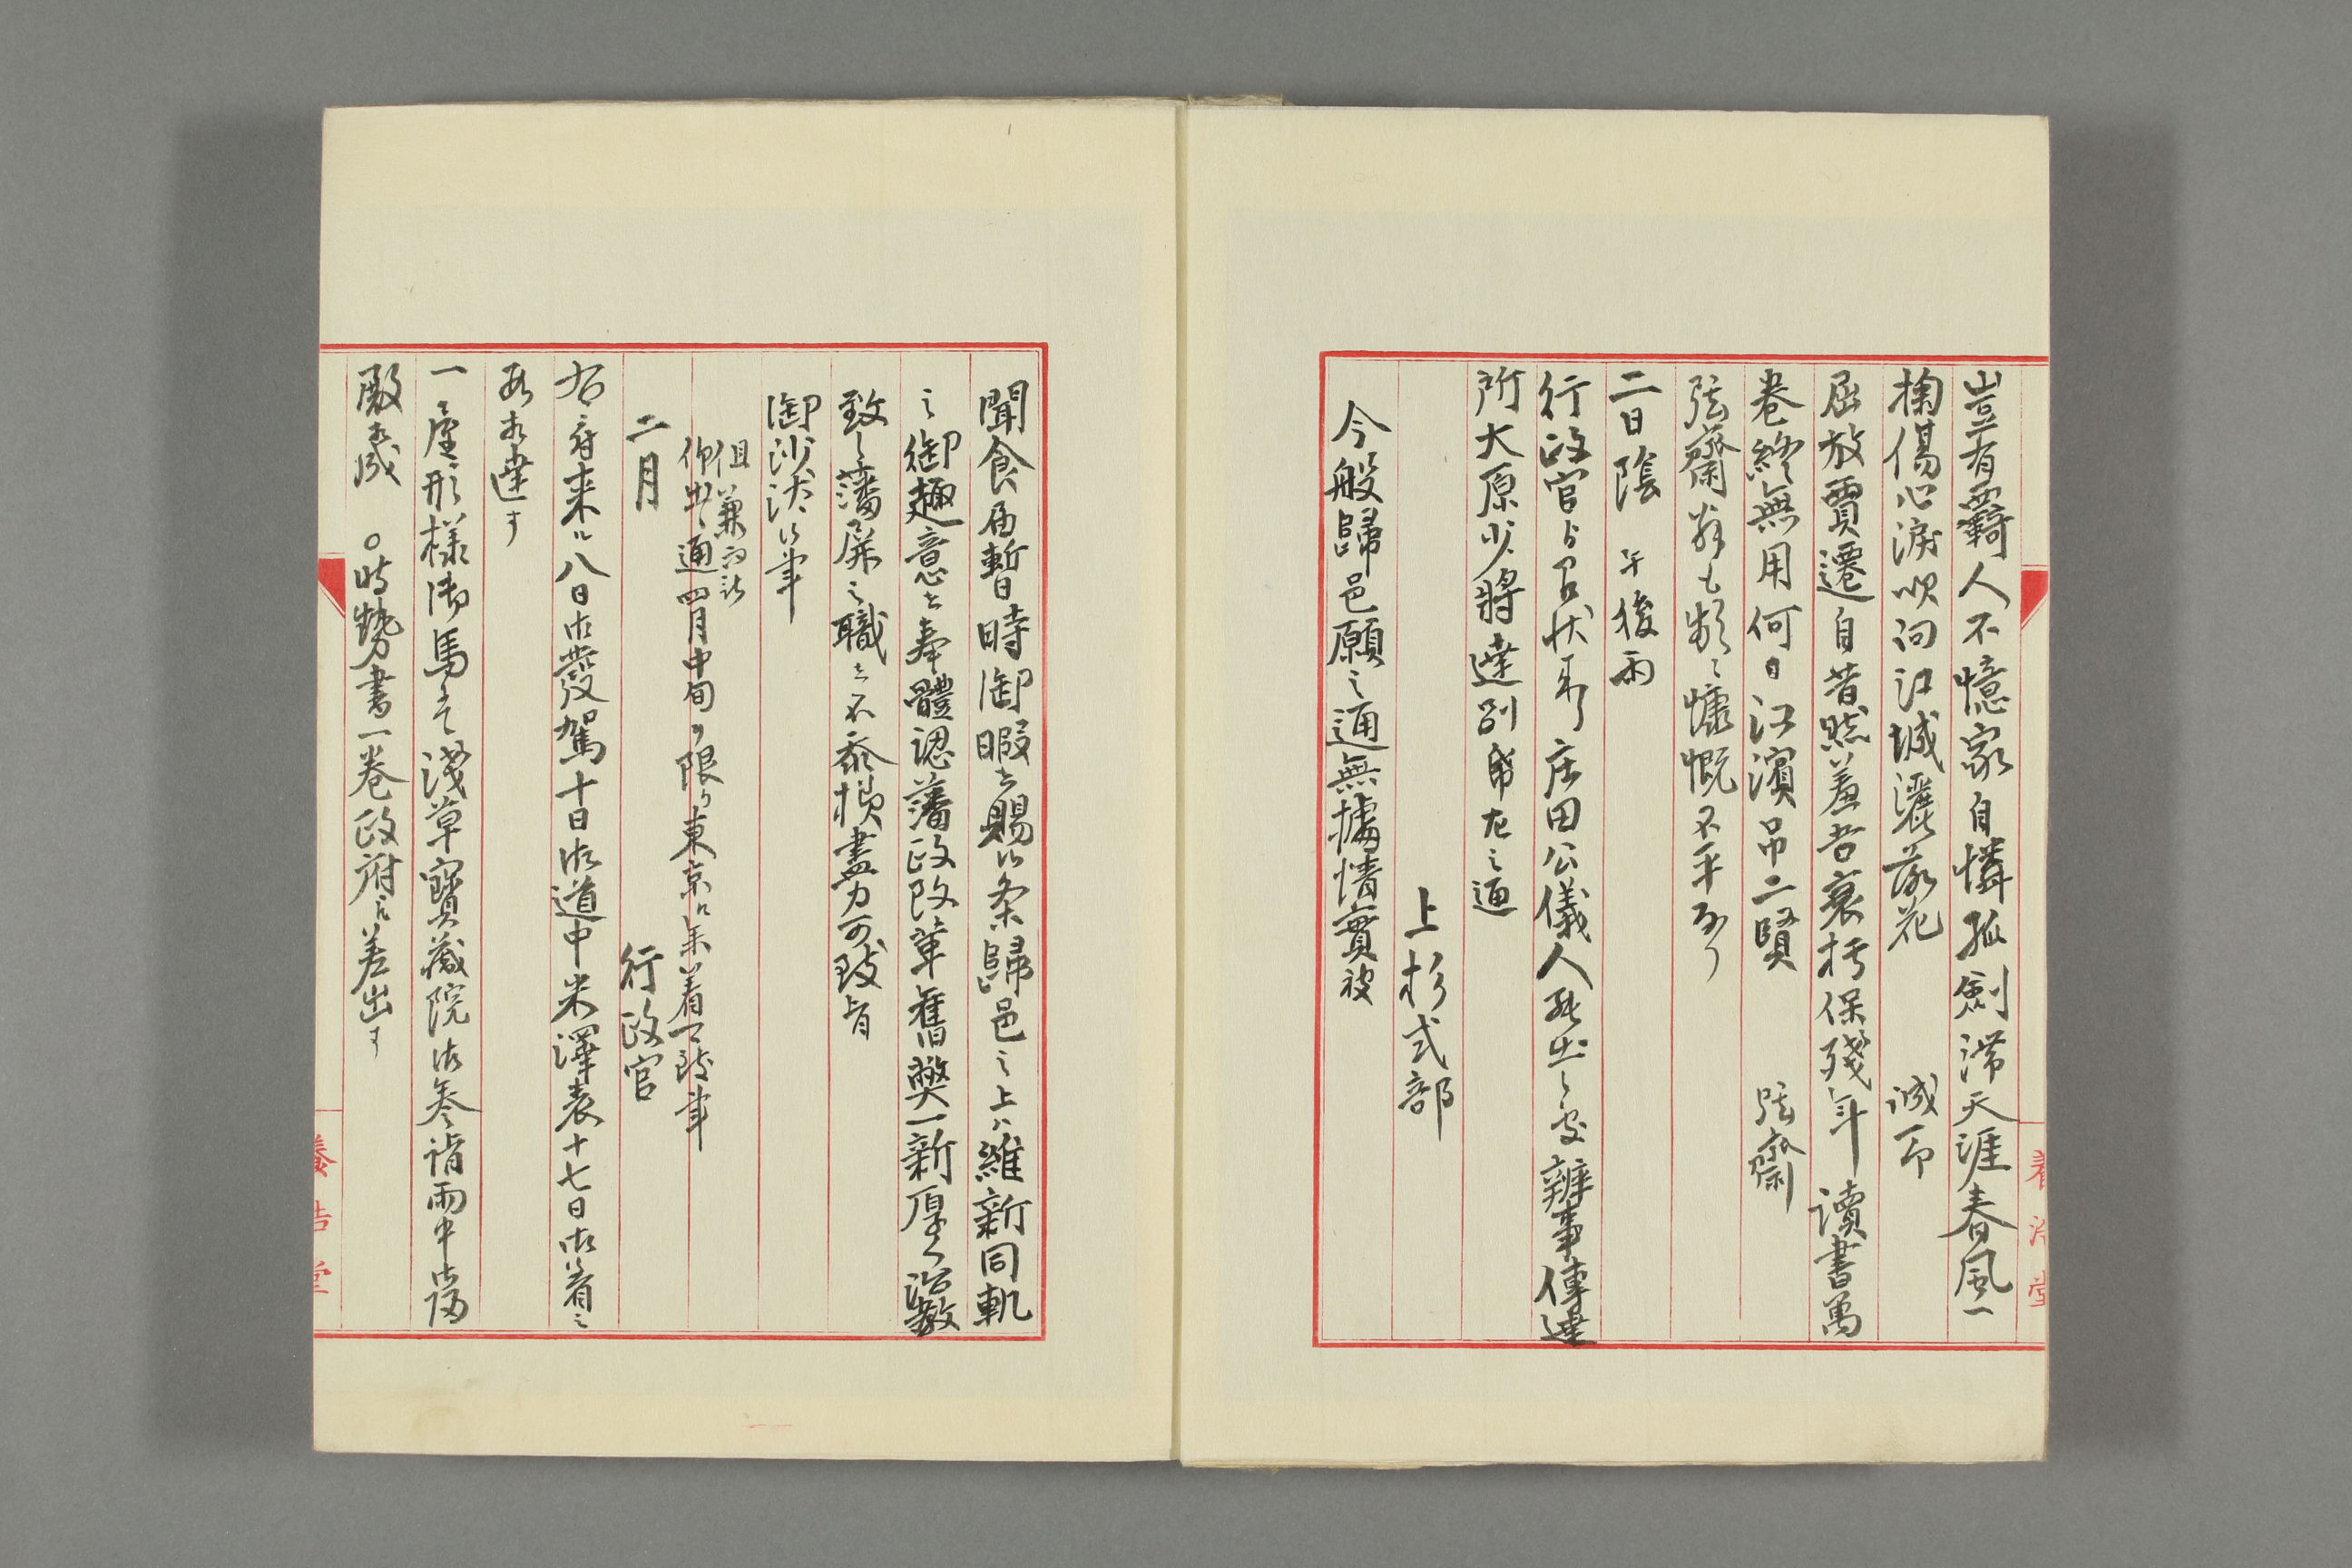 豈有羇人不憶家自憐孤劍滞天涯春風一
掬傷心涙吹向江城灑落花 誠一
屈放賈遷自昔然羞吾衰朽保残年讀書萬
巻終無用何日江濱吊二賢 弦齋
弦齋翁も慷慨不平
二日陰 午後雨
行政官ゟ召状 庄田公儀人罷出候處辨事傳達
所大原少将達別帋左之通
上杉式部
今般歸邑願之通無據情實被
聞食届暫時御暇を賜候条歸邑之上ハ維新同軌
之御趣意を奉體認藩政改革舊弊一新厚く治教
致し藩屏之職を不忝様盡力可致旨
御沙汰候事
但兼而被
仰出候通四月中旬ヲ限り東京江来着可致事
二月
行政官
右ニ付来ル八日御發駕十日御道中米澤表十七日御着之
段相達す
一 形様御馬ニ而淺草寶藏院御参詣雨中御
厳 ○時勢書一巻政府江差出す
養浩堂
養浩堂